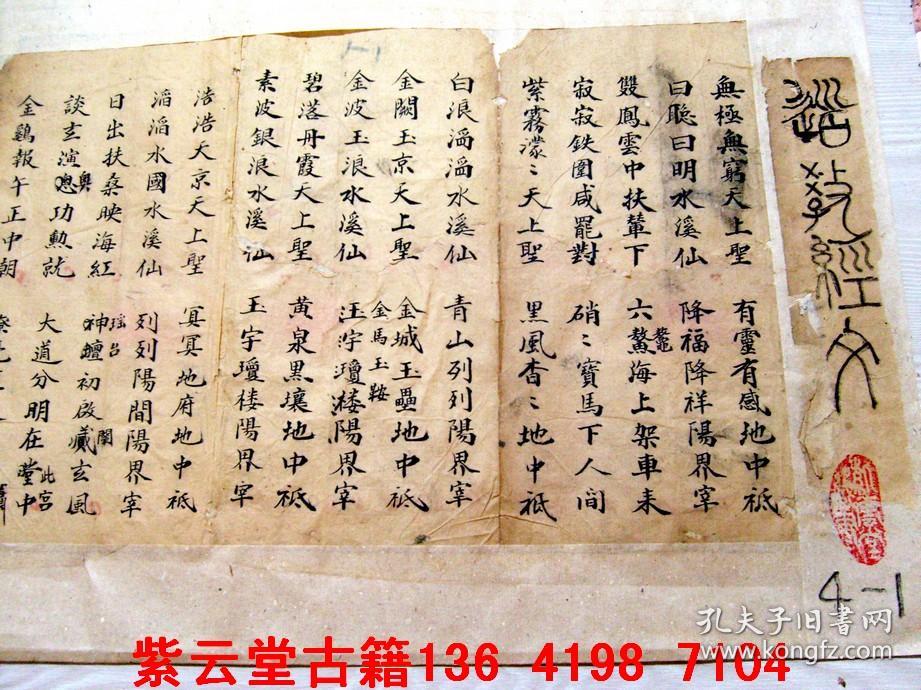 道教經文
無極無窮天上聖 有靈有感地中祇
曰聪曰明水溪仙 降福降祥陽界宰
雙鳳雲中扶輦下 六鰲海上架車来
鼇
寂寂鉄圍咸罷對 硝〻寶馬下人间
紫霧濛〻天上聖 黑風杳〻地中祇
白浪滔滔水溪仙 青山列列陽界宰
金闕玉京天上聖 金城玉壘地中祇
金馬玉鞍
金波玉浪水溪仙 汪洋瓊楼陽界宰
碧落丹霞天上聖 黄泉黒壤地中祇
素波銀浪水溪仙 玉宇瓊楼陽界宰
浩浩天京天上聖 冥冥地府地中祇
滔滔水國水溪仙 列列陽間陽界宰
日出扶桒映海紅 神壇初啟藏玄風
瑶台
闡
談玄演功勲就 大道分明在堂中
奥
此宫
金鷄報午正中朝
4-1
孔夫子旧書网
www.kongfz.com
紫云堂古籍136 4198 7104